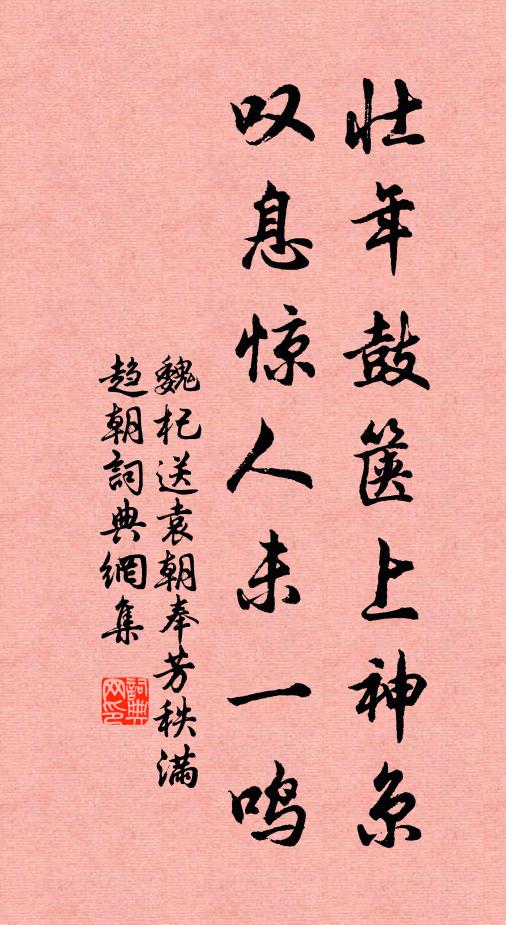 壮年鼓箧上神京
叹息惊人未一鸣
魏杞送袁朝奉芳秩满
趋朝詞典網集
詞典网印